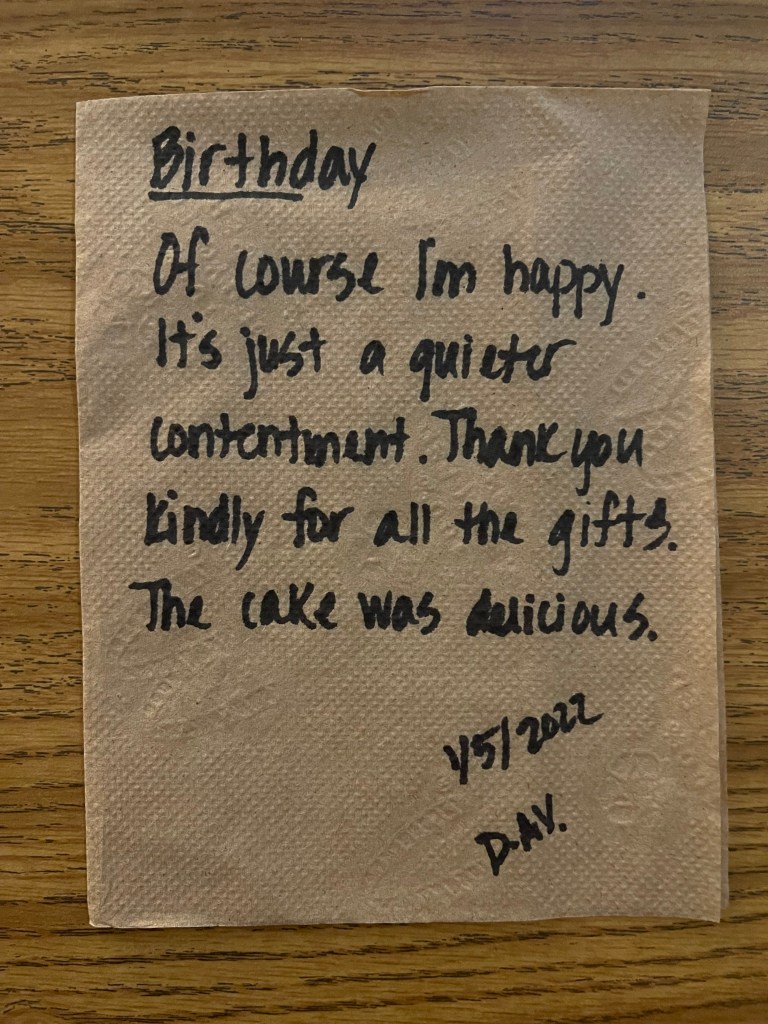 Birthday
Of course I'm happy.
It's just a quieter
contentment. Thank you
kindly for all the gifts.
The cake was delicious.
1/5/2022
D.AV.